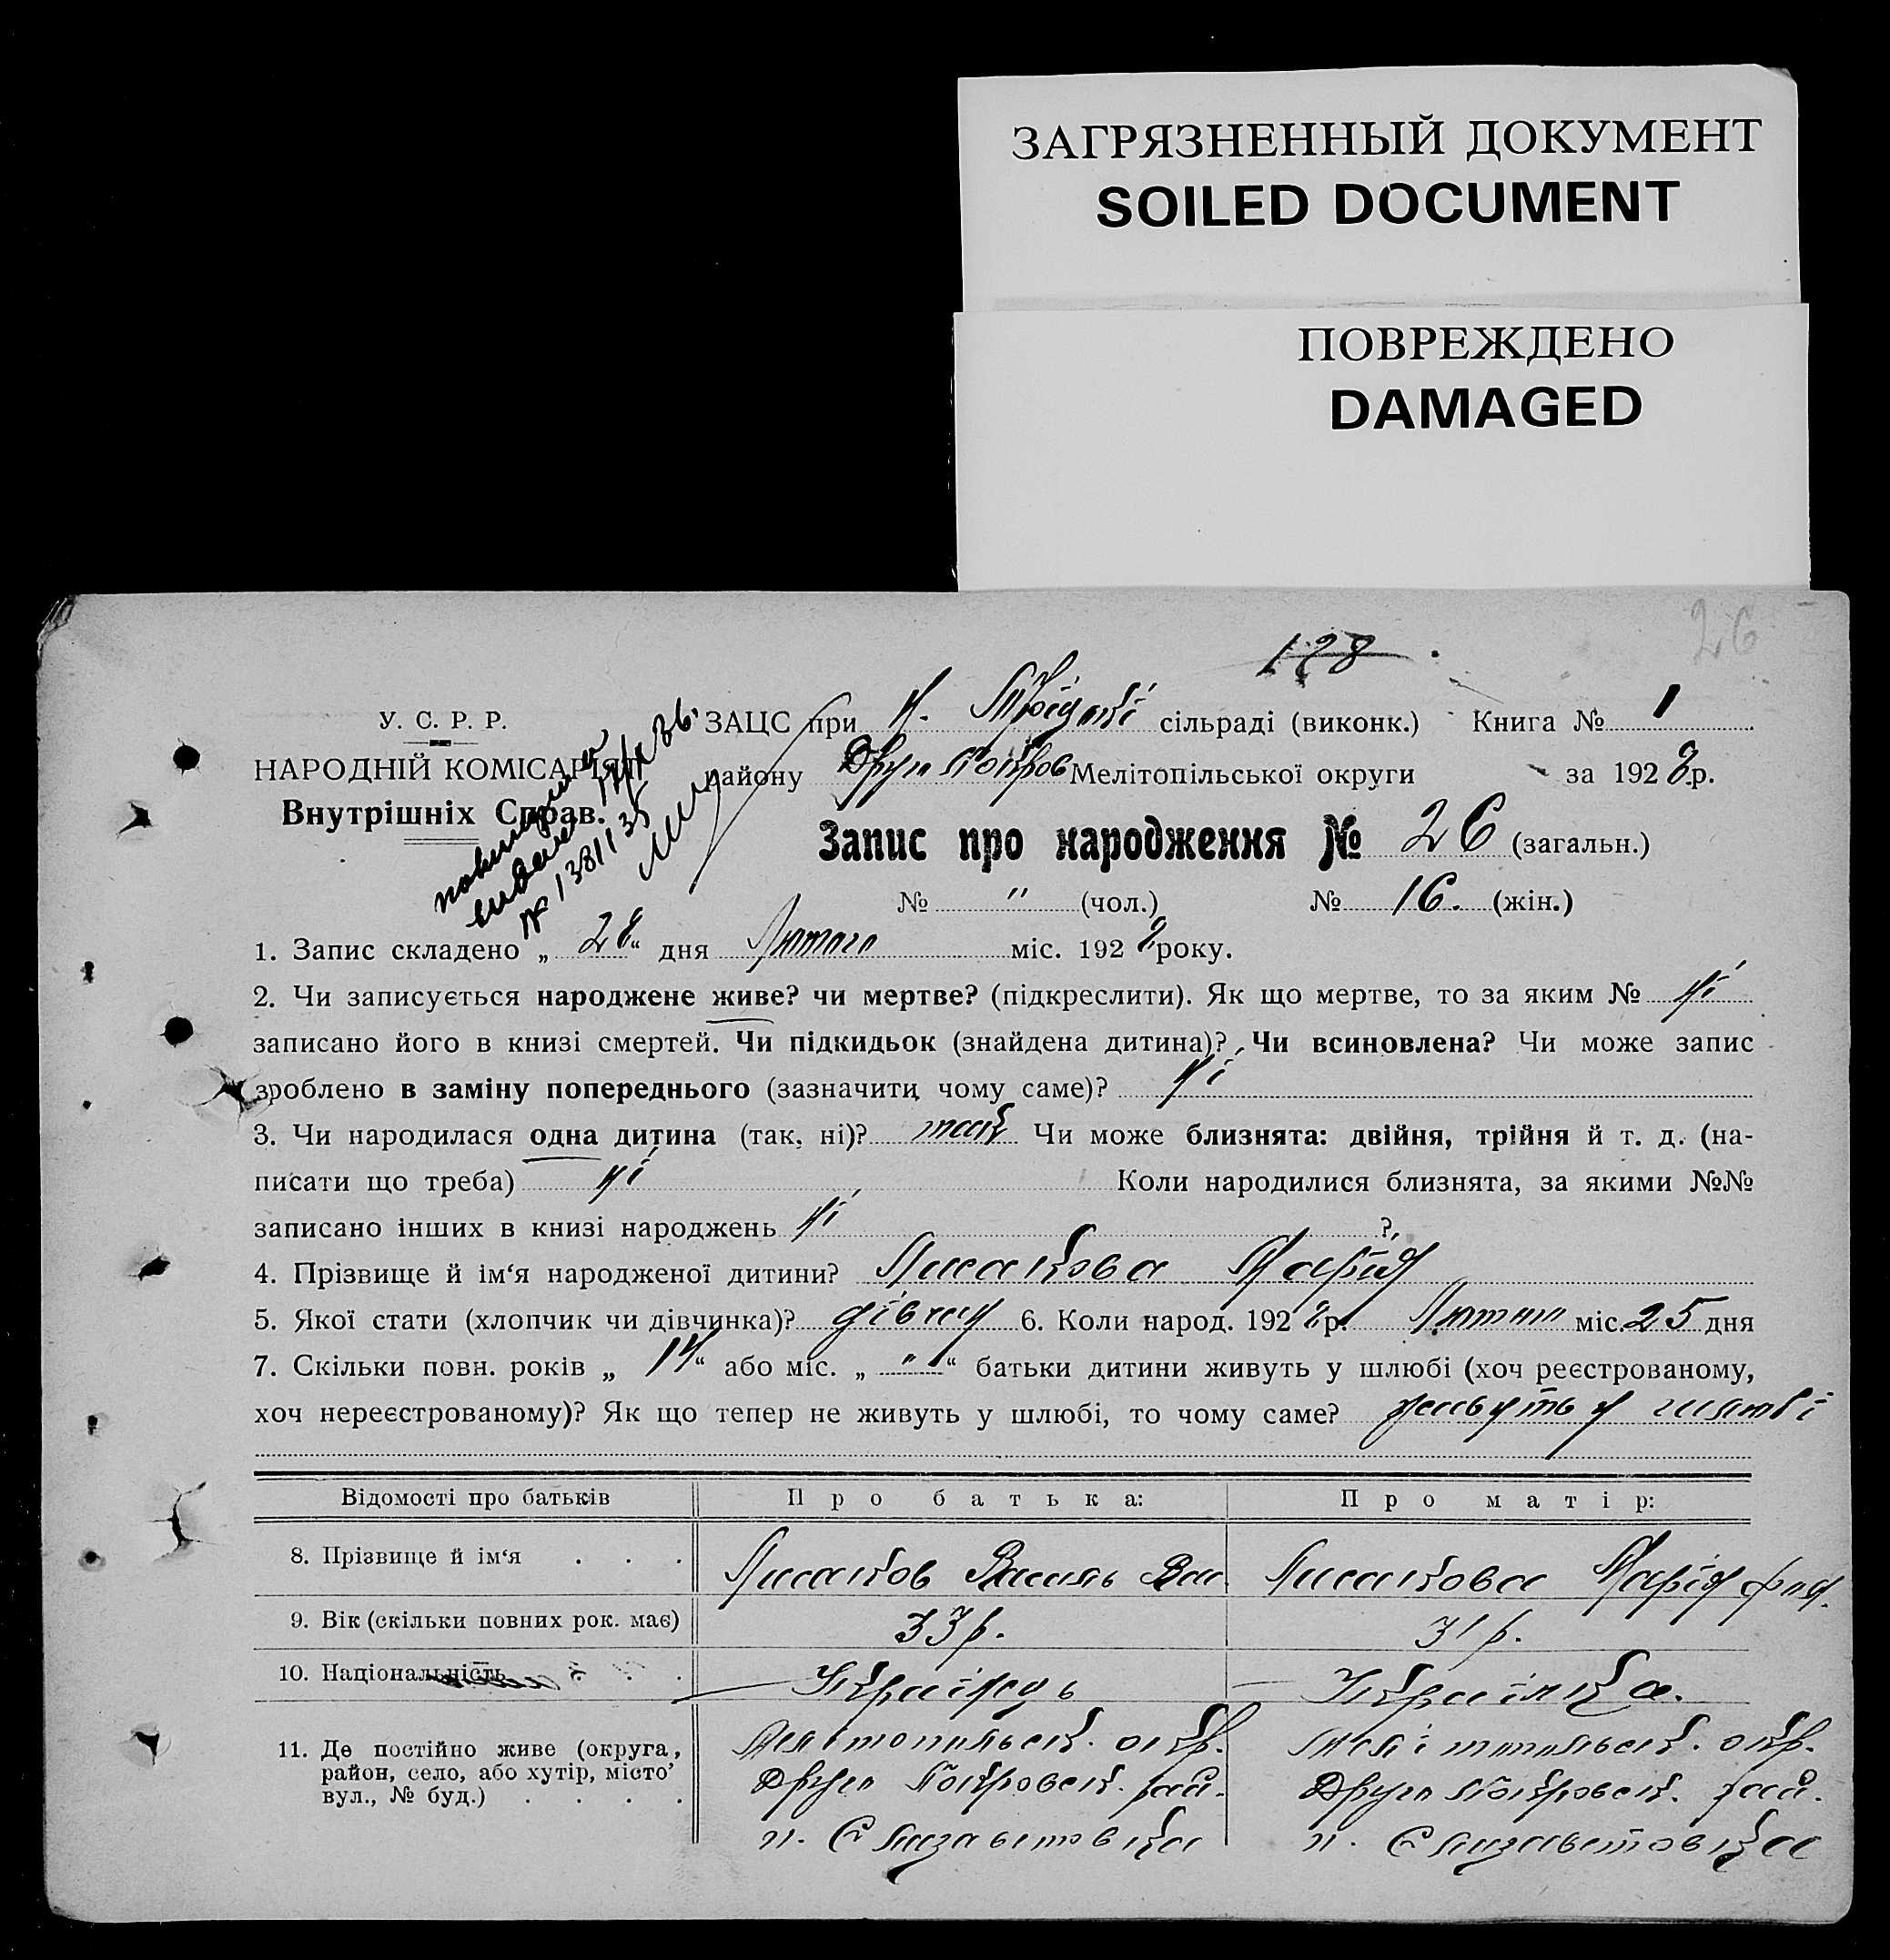 ЗАГРЯЗНЕННЫЙ ДОКУМЕНТ
SOILED DOCUMENT
ПОВРЕЖДЕНО
DAMAGED
26
128
У. С. Р. Р.
НАРОДНІЙ КОМІСАРІЯТ
Внутрішніх Справ.
№ 1381135
ЗАЦС при Н. Троіцькі сільраді (виконк.) Книга № 1
району Друго Покров Мелітопільської округи за 1928 р.
Запис про народження № 26 (загальн.)
№ " (чол.) № 16. (жін.)
1. Запис складено „ 28 “ дня Лютого міс. 1928 року.
2. Чи записується народжене живе? чи мертве? (підкреслити). Як що мертве, то за яким № ні
записано його в книзі смертей. Чи підкидьок (знайдена дитина)? Чи всиновлена? Чи може запис
зроблено в заміну попереднього (зазначити, чому саме)? ні
3. Чи народилася одна дитина (так, ні)? так Чи може близнята: двійня, трійня й т. д. (на-
писати що треба) ні Коли народилися близнята, за якими №№
записано інших в книзі народжень ні ?
4. Прізвище й ім‘я народженої дитини? Лисакова Марія
5. Якої стати (хлопчик чи дівчинка)? 6. Коли народ. 1928 р. Лютого міс. 25 дня
7. Скільки повн. років „ 14 “ або міс. „ " “ батьки дитини живуть у шлюбі (хоч реєстрованому,
хоч нереєстрованому)? Як що тепер не живуть у шлюбі, то чому саме? живуть у шлюбі
Відомості про батьків Про батька: Про матір:
8. Прізвище й ім‘я . . . Лисаков Василь Вас. Лисакова Марія
9. Вік (скільки повних рок. має) 33 р. 31 р.
10. Національність . . . Українець Українка.
11. Де постійно живе (округа, Мелітопільськ. окр. Мелітопільськ. окр.
район, село, або хутір, місто’ Друго Покровськ. рай. Друго Покровськ. рай.
вул., № буд.) . . . . п. Єлизаветовка п. Єлизаветовка